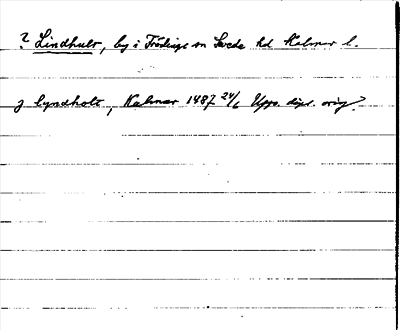 ? Lindhult, by i Frödinge sn Sevede hd Kalmar l.
j lyndholt, Kalmar 1487 24/6 Upps. dipl. orig?